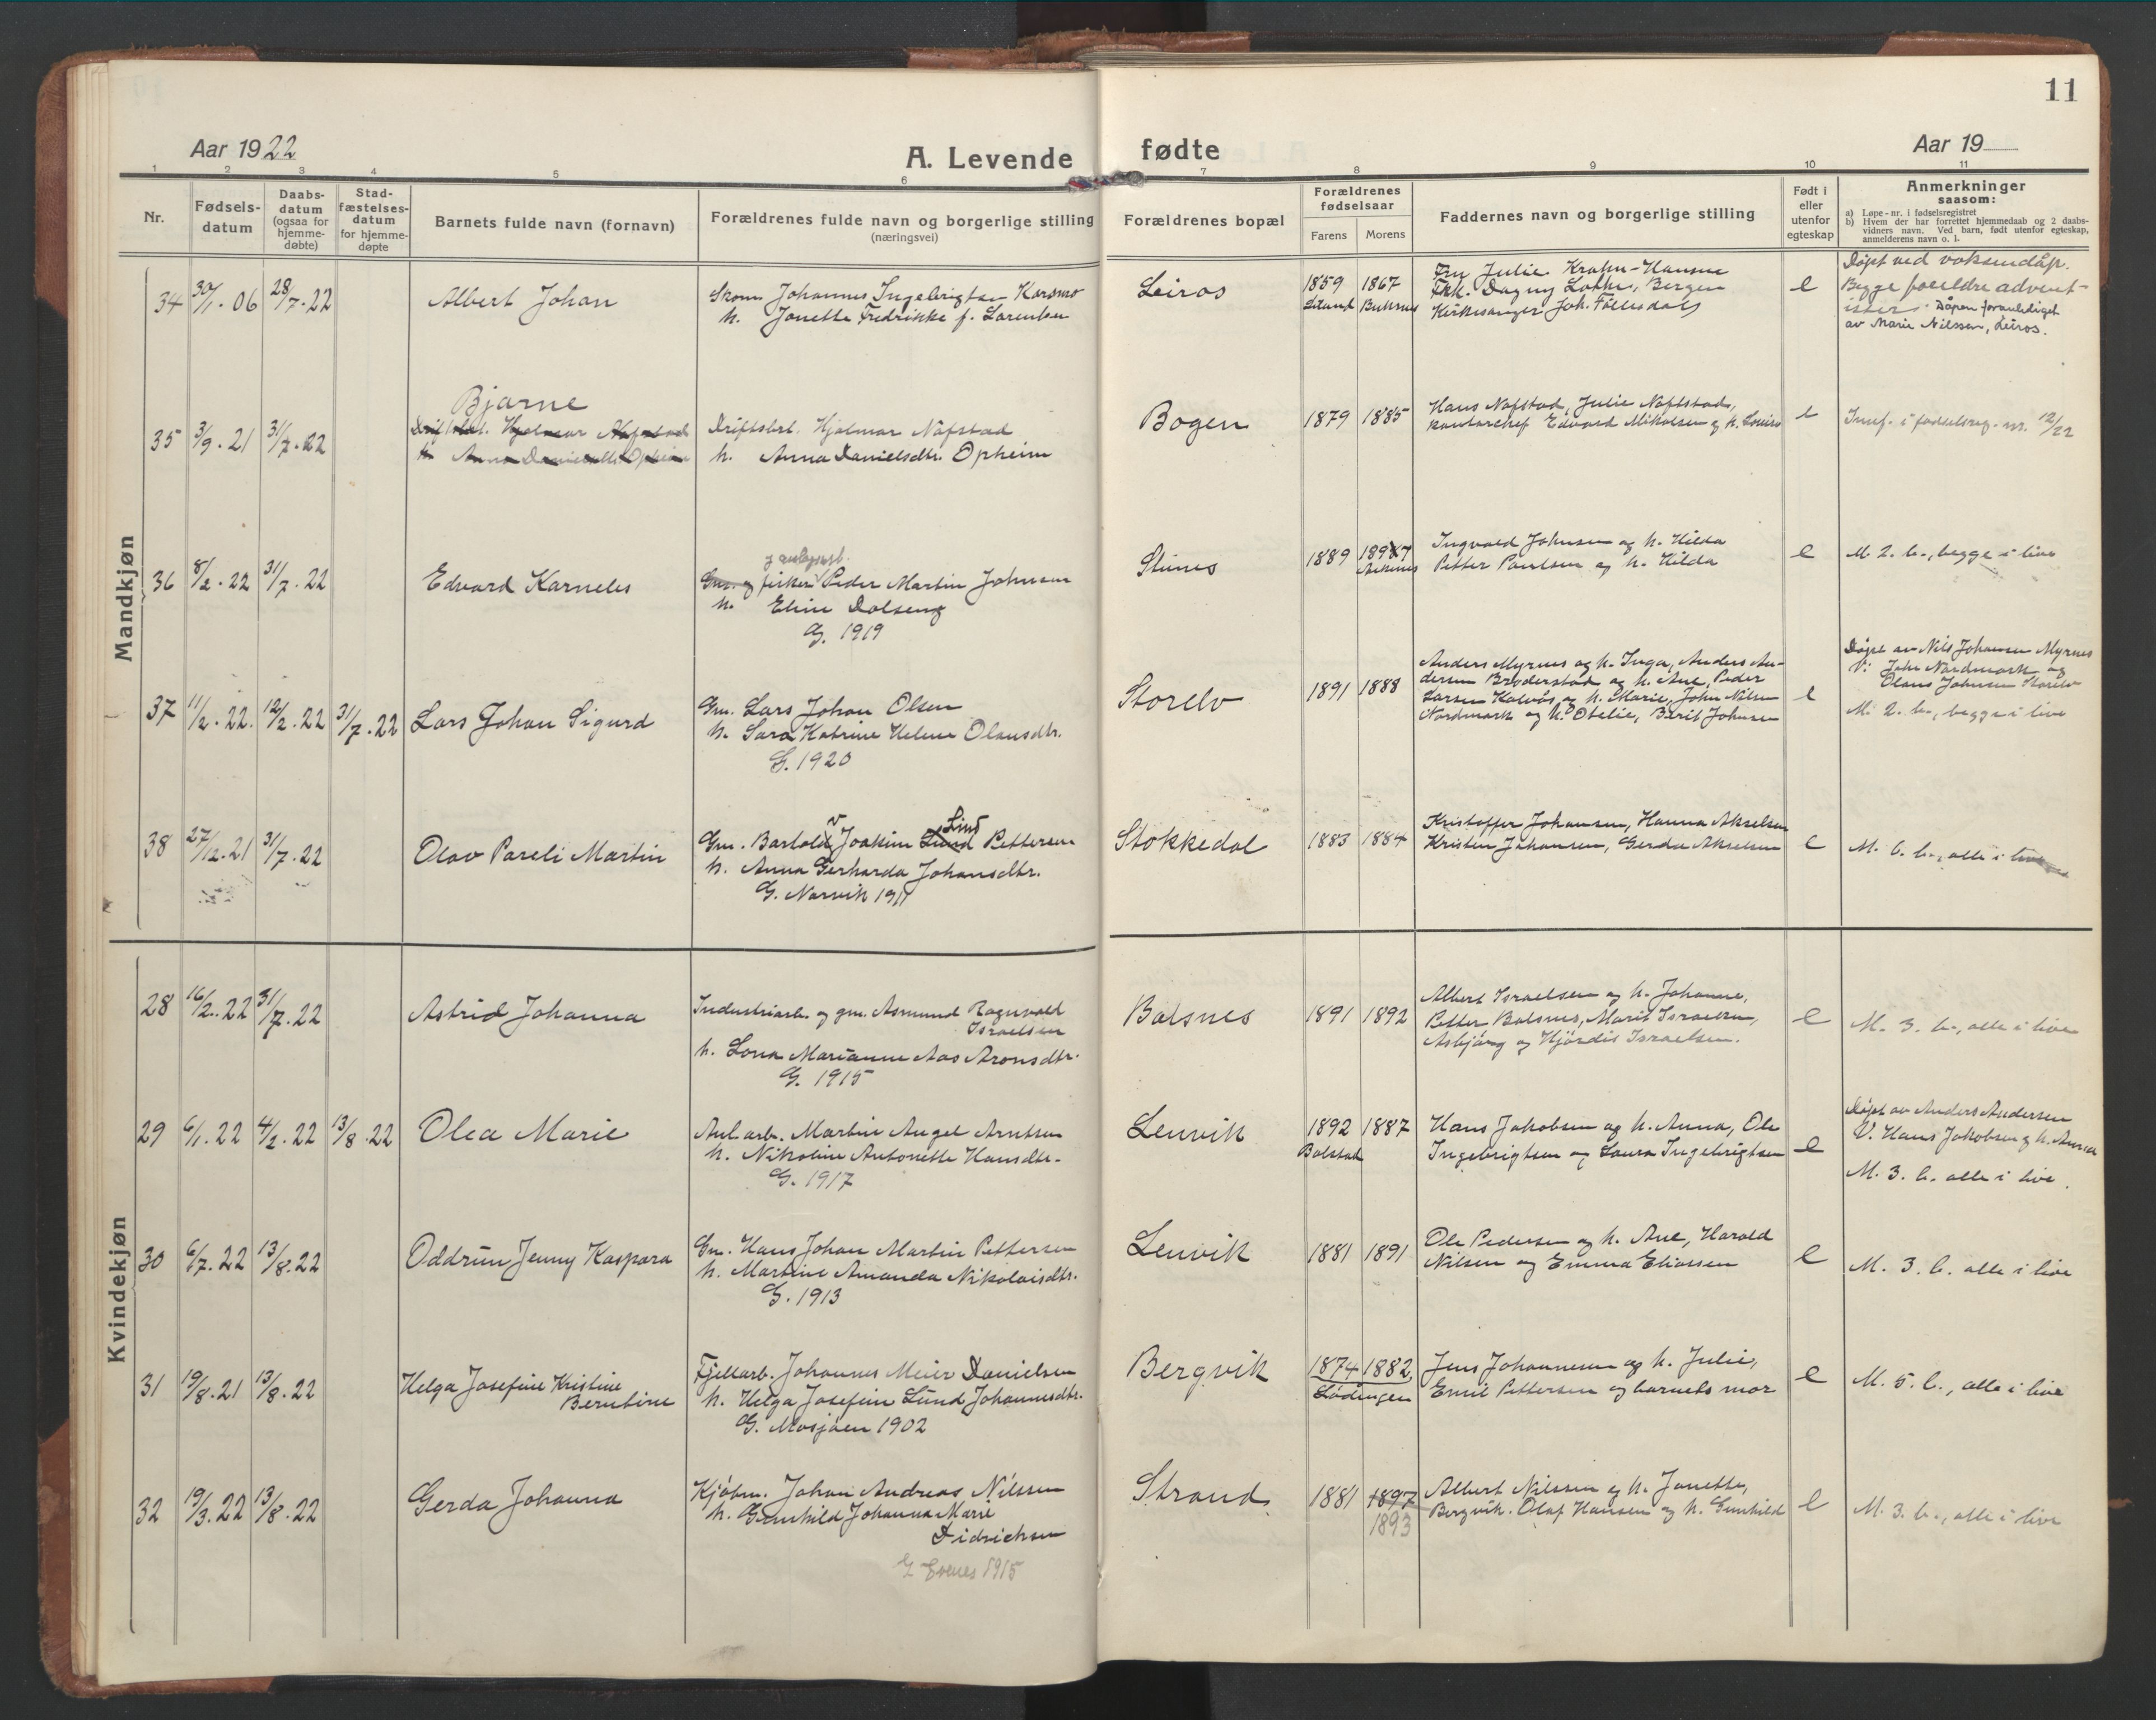 11
Aar 1922
A. Levende
fødte
Aar 19
1 2 3 4 5 6 7 8 9 10 11
Nr.
Fødsels-
datum
Daabs-
datum
(ogsaa for
hjemme-
døbte)
Stad-
fæstelses-
datum
for hjemme-
døpte
Barnets fulde navn (fornavn)
Forældrenes fulde navn og borgerlige stilling
(næringsvei)
Forældrenes bopæl
Forældrenes
fødselsaar
Farens
Morens
Faddernes navn og borgerlige stilling
Født i
eller
utenfor
egteskap
Anmerkninger
saasom:
a) Løpe-nr. i fødselsregistret
b) Hvem der har forrettet hjemmedaab og 2 daabs-
vidners navn. Ved barn, født utenfor egteskap,
anmelderens navn o. l.
Mandkjøn
34
30/1. 06
28/7. 22
Albert Johan
Skom. Johannes Ingebrigtsen Karsmo
h. Jonette Fredrikke f. Larentsen
Leiros
1859
1867
Fru Julie Krahn-Hansen
Frk. Dagny Løkke, Bergen
Kirkesanger Joh. Föllesdal
e
Døpt ved voksendåp.
Begge foreldre advent-
ister. Dåpen foranlediget
av Marie Nilssen, Leiros.
35
3/9. 21
31/7. 22
Bjarne
Driftsbst. Hjalmar Nafstad
h. Anna Danielsdtr. Opheim
Driftsbst. Hjalmar Nafstad
h. Anna Danielsdtr. Opheim
Bogen
1879
1885
Hans Nafstad, Julie Nafstad,
kontorchef Edvard Mikalsen og h. Louise
e
Innf. i fødselsreg. nr. 12/22
36
8/2. 22
31/7. 22
Edvard Karneles
Gm. og fisker Peder Martin Johnsen
h. Eline Dalseng
G. 1919
Stunes
1889
1897
Ingvald Johnsen og h. Hilda
Petter Paulsen og h. Hilda
e
M 2. b., begge i live
37
11/2. 22.
12/2. 22
31/7. 22
Lars Johan Sigurd
Gm. Lars Johan Olsen
h. Sara Katrine Helene Olausdtr.
G. 1920
Storelv
1891
1888
Anders Myrnes og h. Inga, Anders An-
dersen Bruderstad og h. Ane, Peder
Larsen Kalvås og h. Marie, John Nilsen
Nordmark og h. Otelie, Berit Johnsen
e
Døpt av Nils Johansen Myrnes
V: John Nordmark og
Olaus Johnsen Storelv
M. 2. b., begge i live
38
27/12. 21
31/7. 22
Olav Pareli Martin
Lind
Gm. Bartold Joakim Lund Pettersen
h. Anna Gerharda Johansdtr.
G. Narvik 1911
Stokkedal
1883
1884
Kristoffer Johansen, Hanna Akselsen
Kristen Johansen, Gerda Akselsen
e
M. 6. b., alle i live
Kvindekjøn
28
16/2. 22
31/7. 22
Astrid Johanna
Industriarb. og gm. Asmund Ragnvald
Israelsen
h. Lona Marianne Aas Aronsdtr.
G. 1915
Balsnes
1891
1892
Albert Israelsen og h. Johanne,
Petter Balsnes, Marit Israelsen,
Asbjörg og Hjördis Israelsen.
e
M. 3. b., alle i live
29
6/1. 22
4/2. 22
13/8. 22
Olea Marie
Anl. arb. Martin Angel Arntsen
h. Nikoline Antonette Hansdtr.
G. 1917
Lenvik
1892
1887
Balstad
Hans Jakobsen og h. Anna, Ole
Ingebrigtsen og Laura Ingebrigtsen
e
Døpt av Anders Andersen
V. Hans Jakobsen og h. Anna
M. 3. b. alle i live.
30
6/7. 22
13/8. 22
Oddrun Jenny Kaspara
Gm. Hans Johan Martin Pettersen
h. Martine Amanda Nikolaisdtr.
G. 1913
Lenvik
1881
1891
Ole Pedersen og h. Ane, Harald
Nilsen og Emma Eliassen
e
M. 3. b. alle i live
31
19/8. 21
13/8. 22
Helga Josefine Kristine
Berntine
Fjellarb. Johannes Meier Danielsen
h. Helga Josefine Lund Johannesdtr.
G. Mosjøen 1902
Bergvik
1874
1882
Lødingen
Jens Johannesen og h. Julie,
Emil Pettersen og barnets mor
e
M. 5. b., alle i live
32
19/3. 22
13/8. 22
Gerda Johanna
Kjöbm. Johan Andreas Nilssen
h. Gunhild Johanna Marie
Didrichsen
G Evenes 1915
Strand
1881
1897
1893
Albert Nilssen og h. Jonette,
Bergvik. Olaf Hansen og h. Gunhild
e
M. 3. b., alle i live